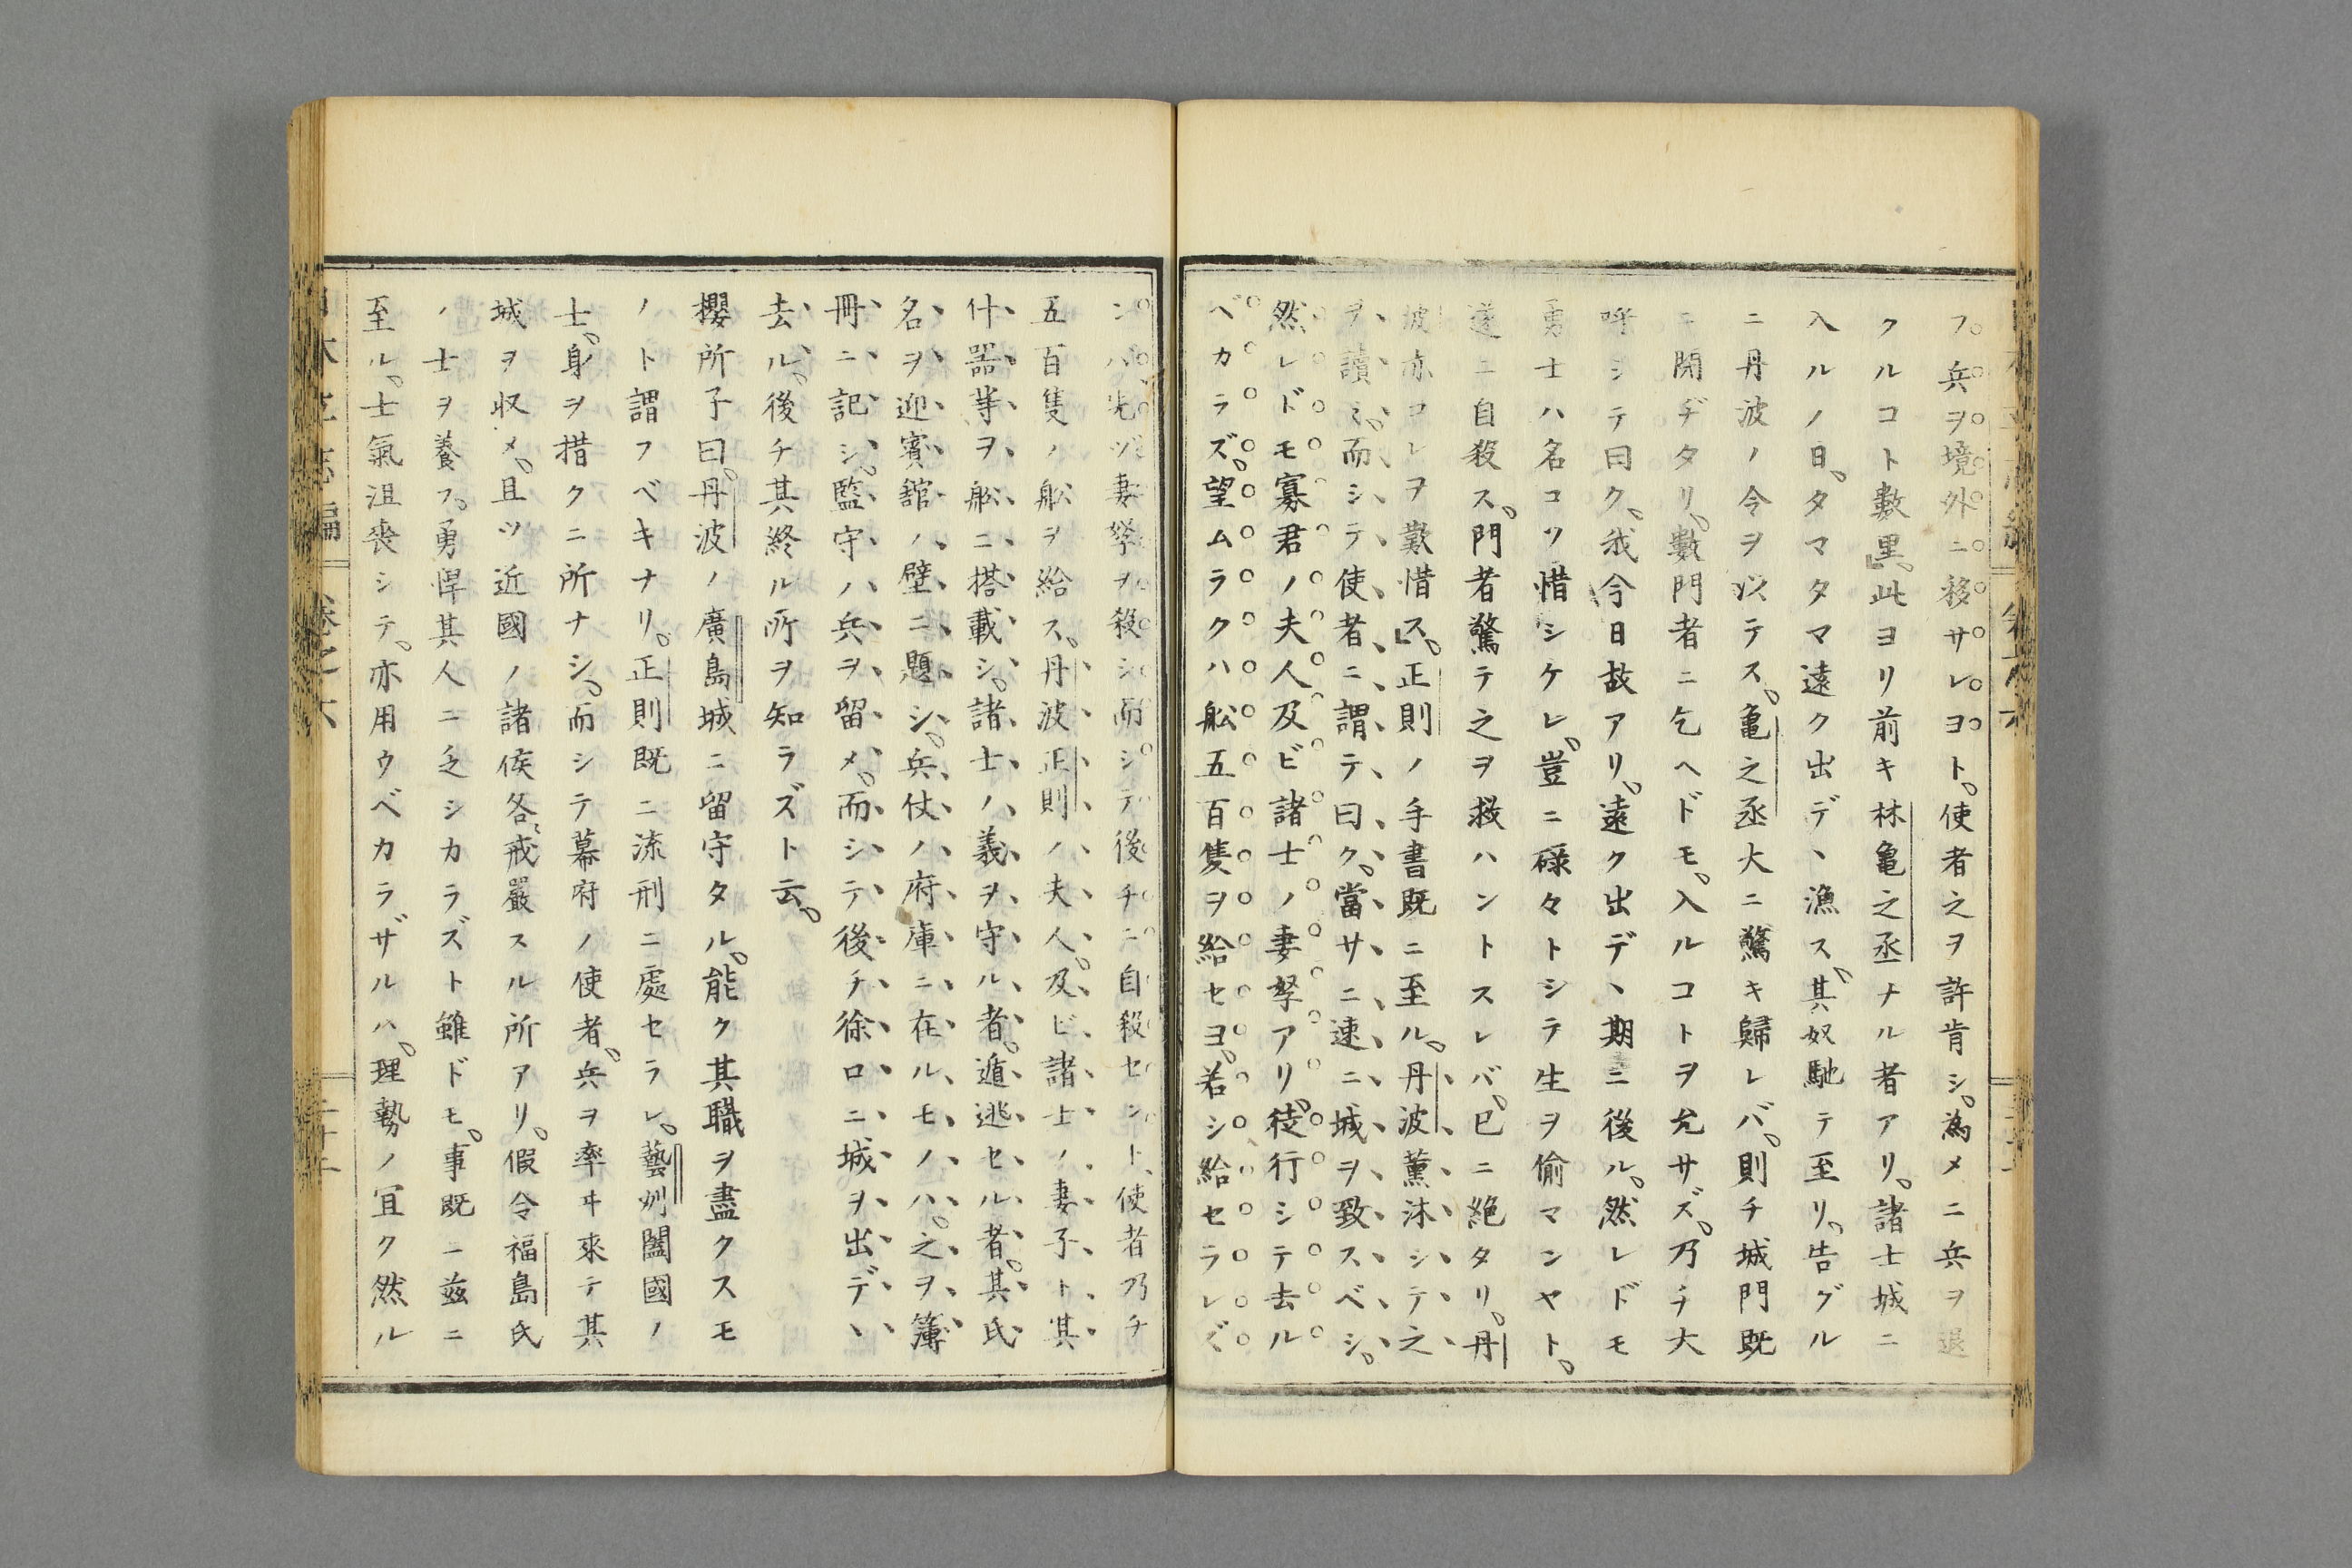 フ兵ヲ境外ニ移サレヨト。使者之ヲ許肯シ。為メニ兵ヲ退
クルコト數里。』此ヨリ前キ林亀之丞ナル者アリ。諸士城ニ
入ルノ日。タマタマ遠ク出デヽ漁ス。其奴馳テ至リ。告グル
ニ丹波ノ令ヲ以テス。亀之丞大ニ驚キ歸レバ。則チ城門既
ニ閉ヂタリ。數門者ニ乞ヘドモ。入ルコトヲ允サズ。乃チ大
呼シテ曰ク。我今日故アリ。遠ク出デヽ期ニ後ル。然レドモ
勇士ハ名コソ惜シケレ。豈ニ碌々トシテ生ヲ偷マンヤト。
遂ニ自殺ス。門者驚テ之ヲ救ハントスレバ。已ニ絶タリ。丹
波亦コレヲ歎惜ス。』正則ノ手書既ニ至ル。丹波薫沐シテ之
ヲ讀ミ。而シテ使者ニ謂テ曰ク。當サニ速ニ城ヲ致スベシ。
然レドモ寡君ノ夫人及ビ諸士ノ妻孥アリ。徒行シテ去ル
ベカラズ。望ムラクハ舩五百隻ヲ給セヨ。若シ給セラレズ
ンバ。先ヅ妻孥ヲ殺シ而シテ後チニ自殺セント。使者乃チ
五百隻ノ舩ヲ給ス。丹波正則ノ夫人。及ビ諸士ノ妻子ト其
什器等ヲ舩ニ搭載シ。諸士ノ義ヲ守ル者。遁逃セル者。其氏
名ヲ迎賓舘ノ壁ニ題シ。兵仗ノ府庫ニ在ルモノハ。之ヲ簿
冊ニ記シ。監守ノ兵ヲ留メ。而シテ後チ徐ロニ城ヲ出デヽ
去ル。後チ其終ル所ヲ知ラズト云。
櫻所子曰。丹波ノ廣島城ニ留守タル。能ク其職ヲ盡クスモ
ノト謂フベキナリ。正則既ニ流刑ニ處セラレ。藝州闔國ノ
士。身ヲ措クニ所ナシ。而シテ幕府ノ使者。兵ヲ率ヰ來テ其
城ヲ収メ。且ツ近國ノ諸侯各〻戒嚴スル所アリ。假令福島氏
ノ士ヲ養フ。勇悍其人ニ乏シカラズト雖ドモ。事既ニ茲ニ
至ル。士氣沮喪シテ。亦用ウベカラザルハ。理勢ノ宜ク然ル